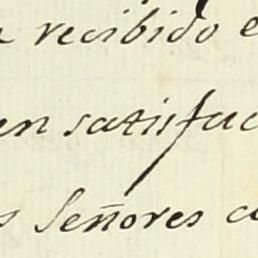 recibido e
en satisfac
s Señores co